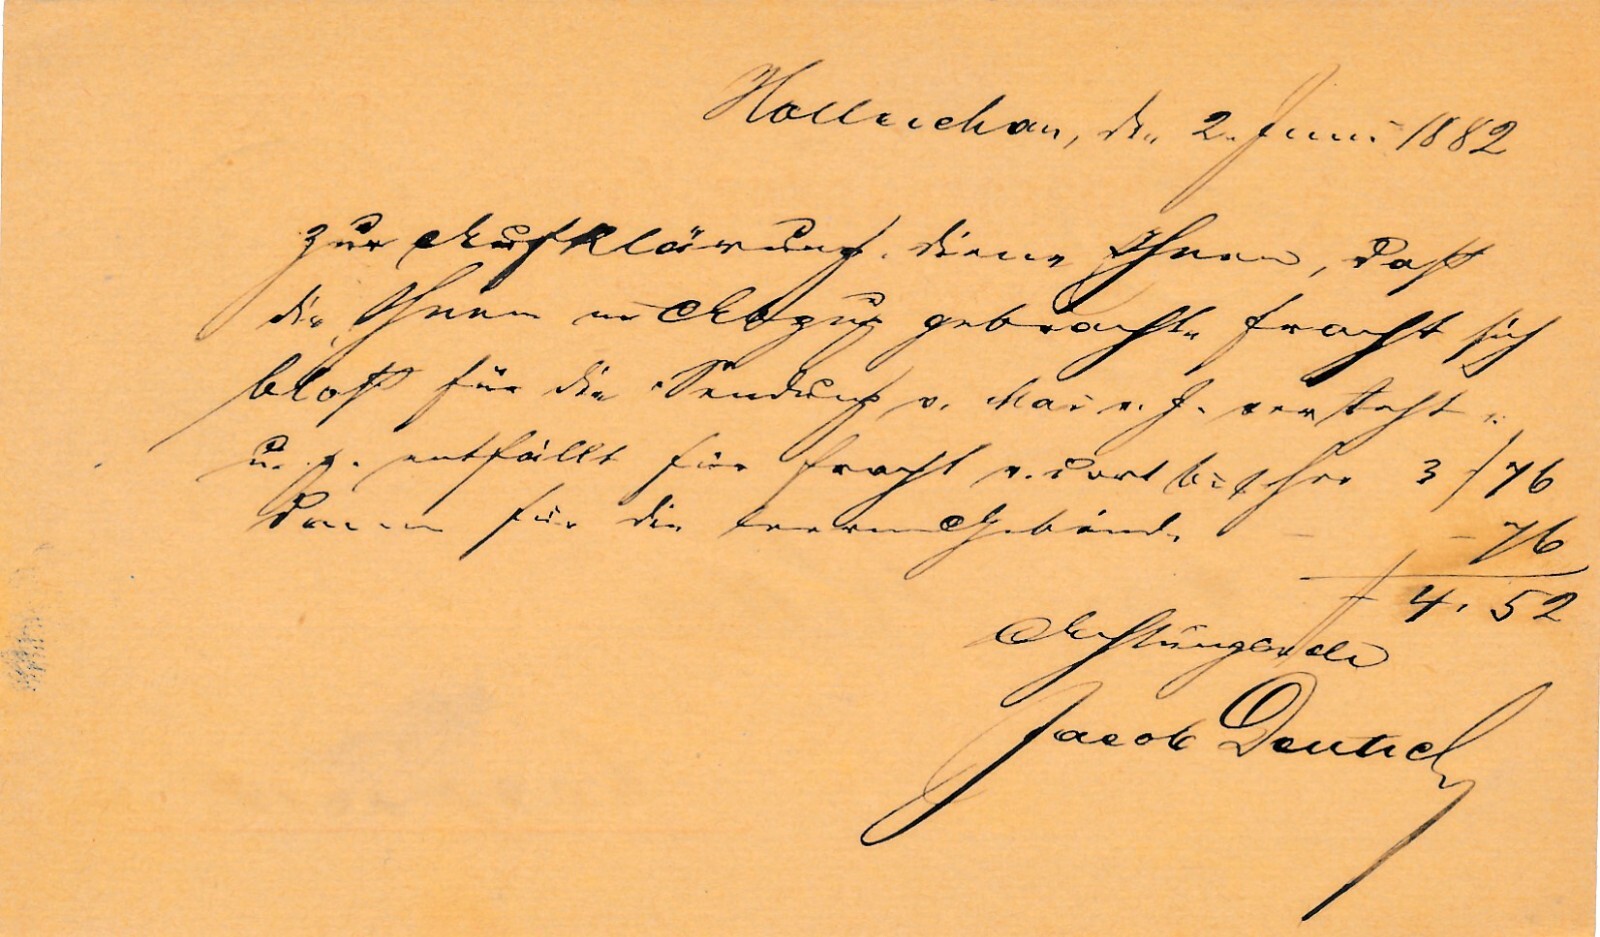 Holleschau, den 2. Juni 1882
Zur Aufklärung diene Ihnen, daß
die Ihnen in Abzug gebrachte Fracht sich
bloß für die Sendung v. Mai v. J. versteht
u. z. entfällt für Fracht v. dort bis hier 3/76
dann für die leeren Gebinde - - 76
f 4.52
Achtungsvoll
Jacob Deutsch